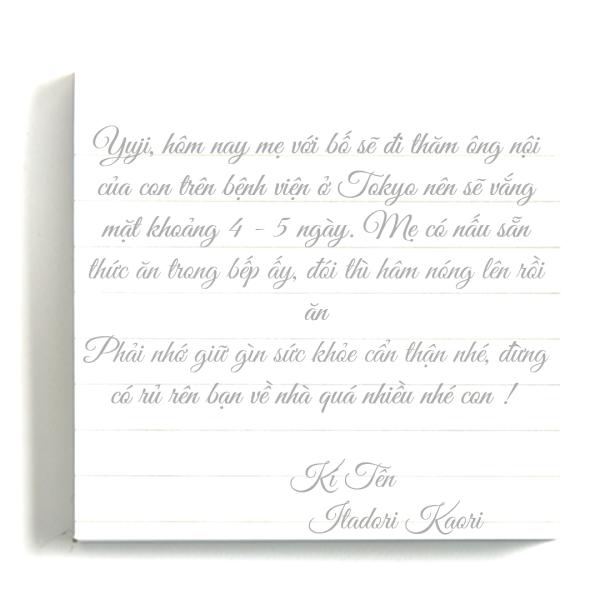 Yuji, hôm nay mẹ với bố sẽ đi thăm ông nội
của con trên bệnh viện ở Tokyo nên sẽ vắng
mặt khoảng 4 - 5 ngày. Mẹ có nấu sẵn
thức ăn trong bếp ấy, đói thì hâm nóng lên rồi
ăn
Phải nhớ giữ gìn sức khỏe cẩn thận nhé, đừng
có rủ rên bạn về nhà quá nhiều nhé con !
Kí Tên
Itadori Kaori